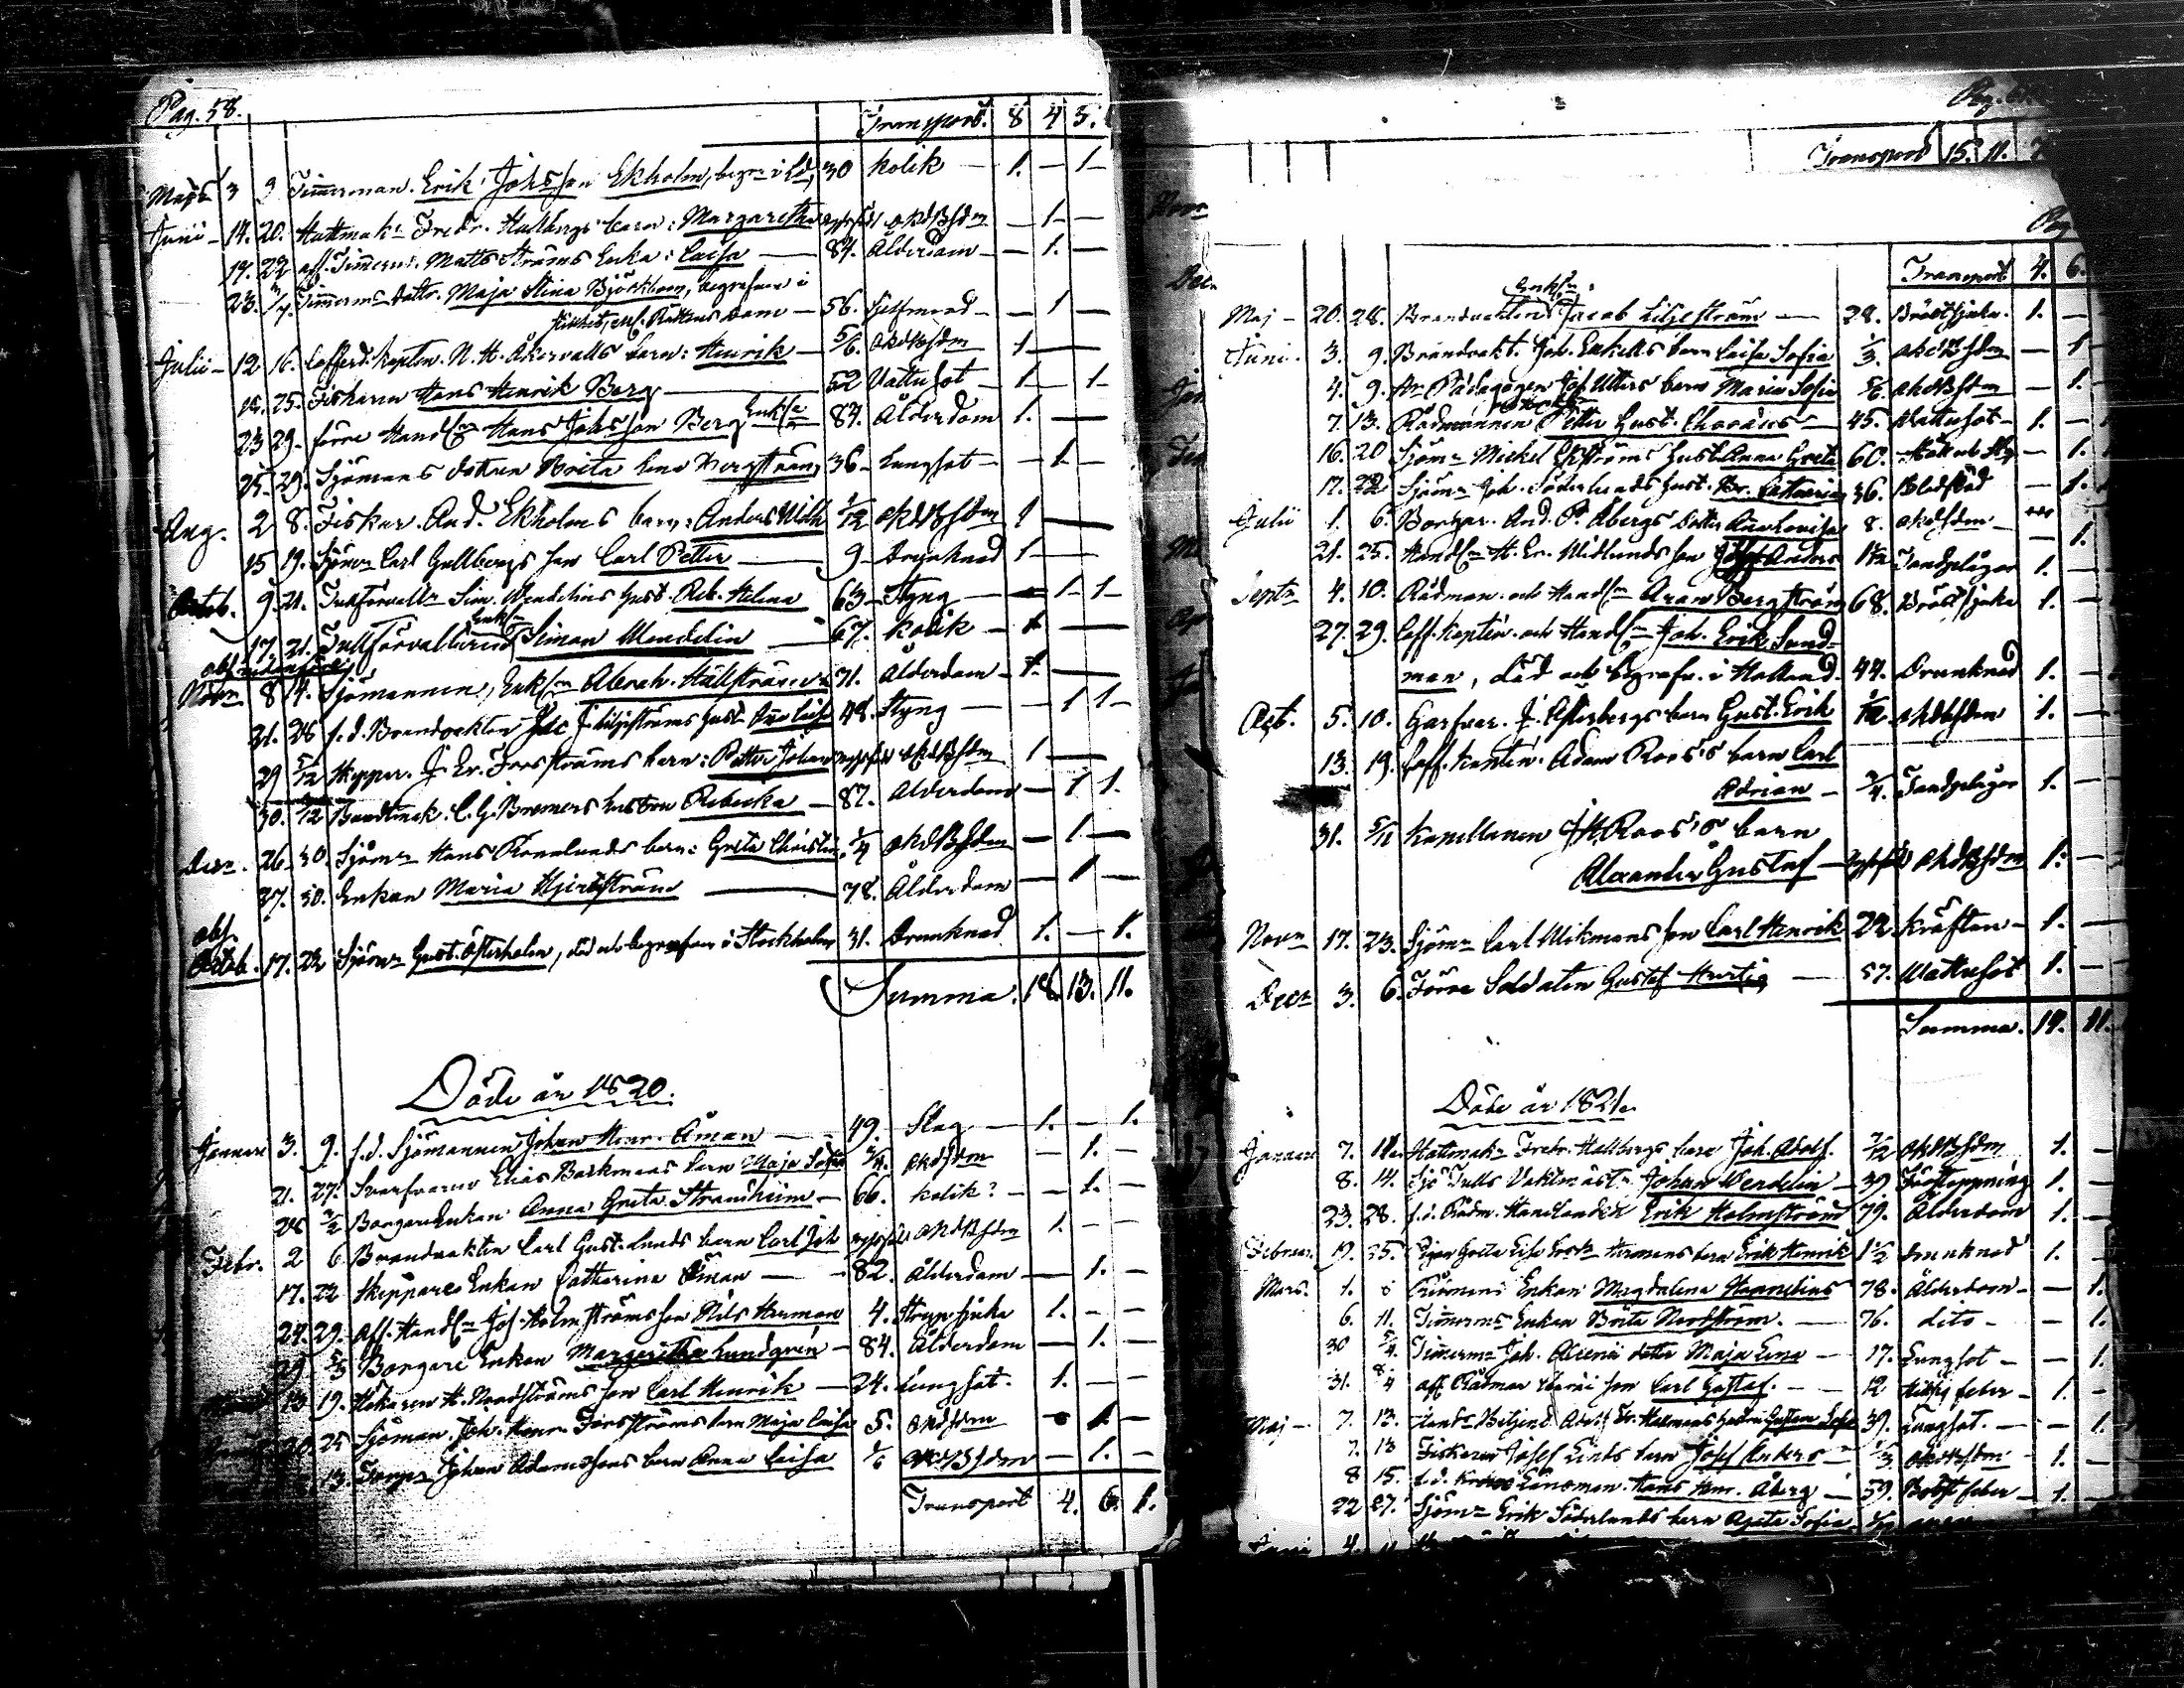 Pag. 58.
Transport. 8 4 3.
Maji 3 9 Timmerman. Erik Johsson Ekholm, begr. i Ld, 30 Kolik — 1. — 1 —
Juni — 14. 20. Hattmak. Fredr. Hallbergs barn: Margaretha — 1. —
19. 22 afl. Timerm. Matts Ströms Enka: Caisa — 84. Ålderdom — 1. —
23. Timerm. dottr. Maja Stina Björkbom, begrafven i
56. — 1
Julii — 12 16. Cofferd. Kapten. N. H. Åkervalls barn: Henrik — 5/6. okd Bsdm 1 —
25. Fiskaren Hans Henrik Berg — 52 Vattusot — 1 — 1 —
23 29. förre Handl. Hans Johsson Berg Enkl. 84. Ålderdom 1. —
25. 29. Sjömans dottren Brita Lena Bergström, 36 — Lungsot — — 1 —
Aug. 2 8. Fiskar. And. Ekholms barn: Anders Wilh 1/12 okd Bsdm 1 —
15 19. Sjöm. Carl Gullbergs son Carl Petter — 9 — Drunknad 1 —
Octob. 9. 21. Tullförvalt. Sim. Wendelins hust. Reb. Helena 63 — Styng — 1 — 1 —
17. 21. Tullförvaltaren Enkl. Simon Wendelin — 67. Kolik — 1 —
Novr. 8 14. Sjömannen, Enkl. Abrah. Hällström 71. Ålderdom — 1. —
21. 26 f. d. Brandvakten Jac. Liljeströms hust. Caisa 48. Styng — — 1 1 —
29 5/12 Skeppar. J. Er. Forsströms barn: Petter Johan okd Bsdm 1 —
30. Bandtmak. C. G. Bremers hustru Rebecka — 87. Ålderdom — 1 1.
Decr. 26. 30. Sjöm. Hans Rönnlunds barn: Greta Christin. okd Bsdm — 1. —
27. 30. Enkan Maria Hjertström — 78. Ålderdom — 1 —
obs.
Octob. 17. 22 Sjöm. Gust. Österholm, död och begrafven i Stockholm 31. Drunknad 1. — 1.
Summa. 18. 13. 11.
Döde år 1820.
Januari 3. 9. f. d. Sjömannen Johan Henr. Åman — 49. Slag — 1. — 1.
21. 27. Svarfvaren Elias Backmans barn Maja Sofia okdsdm — 1. —
26 Borgare Enkan Anna Greta Strandheim — 66. Kolik? — — 1. —
Febr. 2 6 Brandvakten Carl Gust. Lunds barn Carl Joh. okd Bsdm 1. — —
17. 22 Skeppare Enkan Catharina Öman — 82. Ålderdom — 1. —
24. 29. Aff. Handl. Joh. Holmströms son Nils Herman 4. Strypsjuka 1. — —
29 5/3 Borgare Enkan Margaretha Lundgren — 84. Ålderdom — 1. —
13 19. Hökaren H. Nordströms son Carl Henrik — 24. Lungsot. 1. — —
25 Sjöman. Joh. Henr. Forsströms barn Maja Caisa 5. okdsdm 1 —
13. Johan Adamssons barn Anna Caisa 1/6 okd Bsdm — 1. —
Transport 4. 6. 1.
Transport 15. 11.
Transport 4. 6.
Maj — 20. 28. Brandvaktens Enkl. Jacob Liljeström — 28. Bröstsjuka. 1. —
Juni. 3. 9. Brandvakt. Joh. Enkells barn Caisa Sofia 1/3. okd Bsdm — 1
4. 9. Pädagogen Joh. Utters barn Maria Sofia 5/6. okd Bsdm — 1.
7. 13. Rådmannen Petter Gust. Choræus — 45. Wattusot — 1. —
16. 20 Sjöm. Mickel Ekströms hust. Anna Greta 60. — 1.
17. 22 Sjöm. Joh. Söderlunds hust. Br. Catharina 36. Blodstöd — 1.
Julii 1. 6. Borgar. And. P. Åbergs dotter Eva Lovisa 8. okdsdm —
21. 25. Handl. H. Er. Widlunds son Josef Anders 1 1/2 Tandplågor 1. —
Septr. 4. 10. Rådman. och Handl. Aron Bergström 68. Bröstsjuka 1. —
27. 29. Coff. Kapten. och Handl. Joh. Erik Sand-
man, död och begrafv. i Holland. 44. Drunknad 1. —
Oct. 5. 10. Garfvar. J. Österbergs barn Gust. Erik 1/12 okd Bsdm 1. —
13. 19. Coff. Kapten. Adam Roos's barn Carl
Adrian — 3/4. Tandplågor 1. —
31. 5/11 Kapellanen J. H. Roos's barn
Alexander Gustaf — okd Bsdm 1. —
Novr. 17. 23. Sjöm. Carl Wikmans son Carl Henrik 22. Kräftan — 1. —
Decr. 3. 6. Förre Soldaten Gustaf Hurtig — 57. Wattusot 1. —
Summa. 19. 11.
Döde år 1821.
Januari 7. 11. Hattmak. Fredr. Hallbergs barn Joh. Adolf. okd Bsdm 1. —
8. 14. Sjö Tulls Vaktmäst. Johan Wendelin — 39. Förstoppning 1. —
23. 28. f. d. Rådm. Handlanden Erik Holmström 79. Ålderdom 1. —
Februari 19. 25. barn Erik Henrik 1 1/2 Drunknad 1. —
Mars. 1. Enkan Magdalena Hannelius 78. Ålderdom — — 1.
6. 11. Timmerm. Enkan Brita Nordström. — 76. dito — — 1.
30 5/4. Timmerm. Joh. Alcenii dotter Maja Lena — 17. Lungsot — — 1.
31. 8/4 aff. Rådman son Carl Gustaf. — 12 feber — 1. —
Maj — 7. 13. 39. Lungsot. — — 1.
7. 13 Fiskaren Josef Linds barn Josef Anders — 1/3 okd Bsdm 1. —
8 15. f. d. Länsman. Hans Henr. Åberg — 59. feber — 1. —
22 27. Sjöm. Erik Söderlunds barn Agata Sofia
Juni 4.